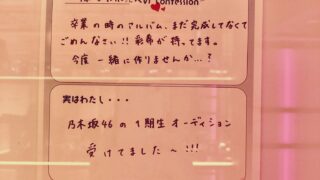 Confession
卒業の時のアルバム、まだ完成してなくて
ごめんなさい!! 彩希が持ってます。
今度一緒に作りませんか…?
実はわたし・・・
乃木坂46の1期生オーディション
受けてました〜!!!